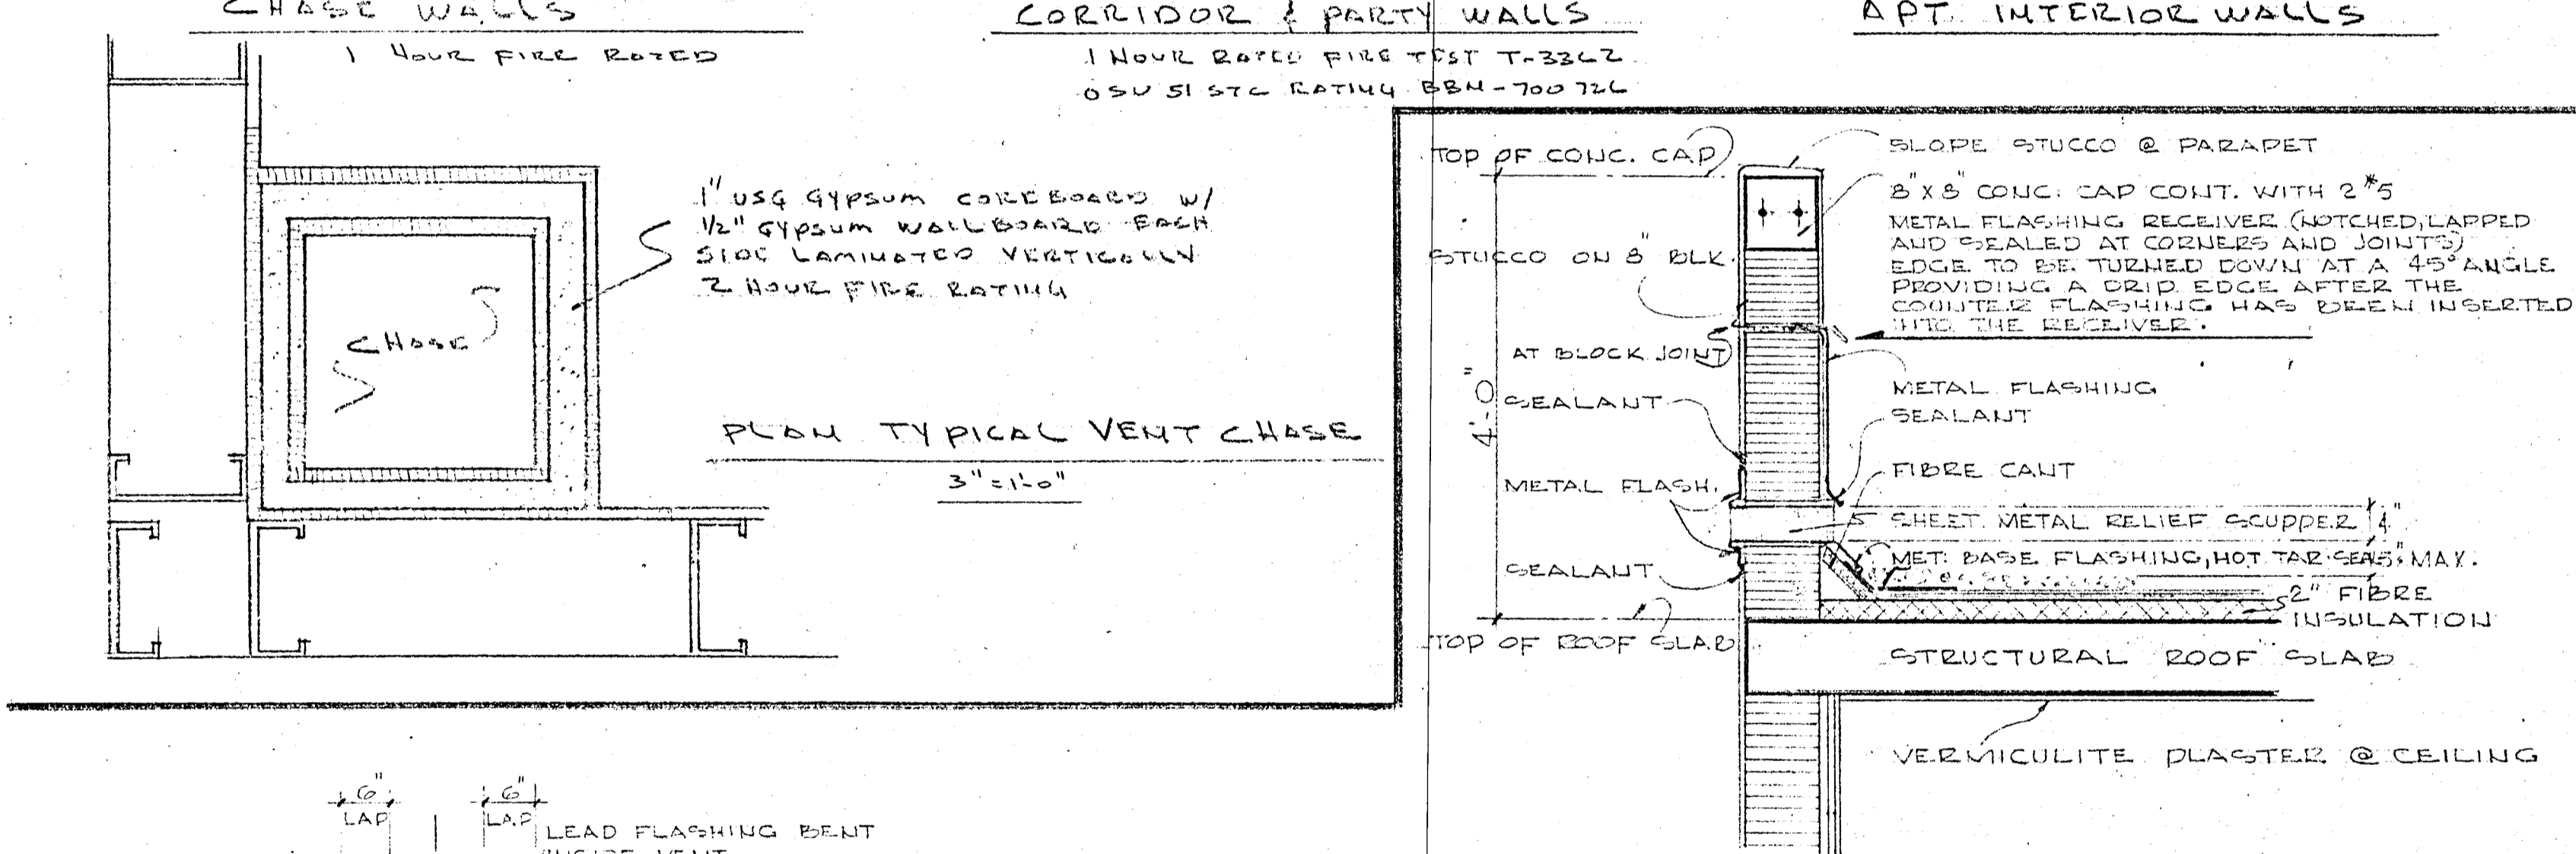 CHASE WALLS
1 HOUR FIRE RATED
CORRIDOR & PARTY WALLS
1 HOUR RATED FIRE TEST T-3362
OSU 51 STC RATING BBN-700726
APT. INTERIOR WALLS
1" USG GYPSUM COREBOARD W/
1/2" GYPSUM WALLBOARD EACH
SIDE LAMINATED VERTICALLY
2 HOUR FIRE RATING
CHASE
PLAN TYPICAL VENT CHASE
3"=1'-0"
6"
LAP
6"
LAP
LEAD FLASHING BENT
INSIDE VENT
TOP OF CONC. CAP
STUCCO ON 8" BLK.
AT BLOCK JOINT
4'-0"
SEALANT
METAL FLASH.
SEALANT
TOP OF ROOF SLAB
SLOPE STUCCO @ PARAPET
8"X8" CONC. CAP CONT. WITH 2 #5
METAL FLASHING RECEIVER (NOTCHED, LAPPED
AND SEALED AT CORNERS AND JOINTS)
EDGE TO BE TURNED DOWN AT A 45° ANGLE
PROVIDING A DRIP EDGE AFTER THE
COUNTER FLASHING HAS BEEN INSERTED
INTO THE RECEIVER.
METAL FLASHING
SEALANT
FIBRE CANT
SHEET METAL RELIEF SCUPPER 4"
MET. BASE FLASHING, HOT TAR SEAL 5" MAX.
2" FIBRE
INSULATION
STRUCTURAL ROOF SLAB
VERMICULITE PLASTER @ CEILING